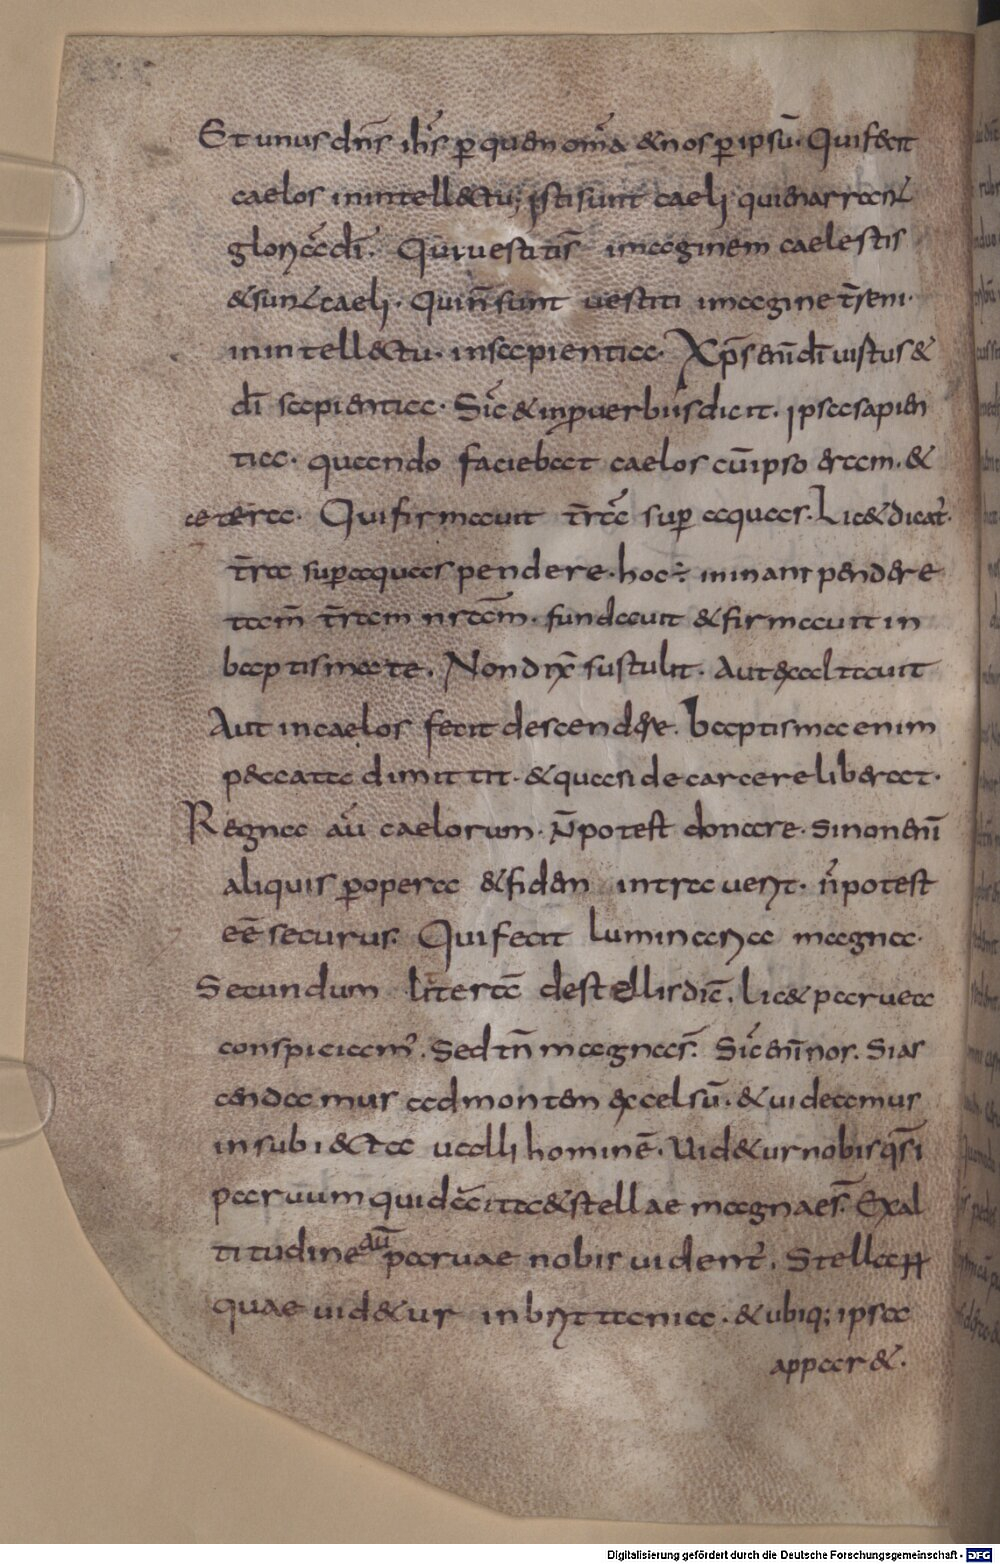 Et unus dn̄s ih̄s ꝑ quem om̄a & nos ꝑ ipsū. Qui fecit
caelos in intellectu; Isti sunt caeli qui enarrant
gloriā dī. Qui uestitis imaginem caelestis
& sunt caeli. Qui n̄ sunt uestiti imagine t̄reni.
in intellectu. in sapientia. Xp̄s enī dī uistus &
dī sapientia. Sic & in ꝓuerbiis dicit. Ipsa sapien
tia. quando faciebat caelos cū ipso eram. &
cetera. Qui firmauit t̄rā suꝑ aquas. Lic& dicat̄
t̄ra suꝑ aquas pendere. hoc ÷ minant pendere
tam̄ t̄ram nr̄am. fundauit & firmauit in
baptismate. Non dix̄ sustulit. Aut exaltauit
Aut in caelos fecit descendere. baptisma enim
peccata dimittit. & quasi de carcere liberat.
Regna aū caelorum. n̄ potest donare. Si non enī
aliquis ꝑ opera & fidem intrauerit. n̄ potest
eē securus. Qui fecit luminaria magna.
Secundum literā de stellis dic̄. lic& parua
conspiciam̄. Sed tn̄ magnas. Sic enī nos. Si as
cendamus ad montem excelsū. & uideamus
in subiecta ualli hominē. Uid&ur nobis q̄si
paruum quidā ita & stellae magnae s̄. Ex al
titudine aū paruae nobis uident̄. Stella ꝶ
quae uid&ur in brittania. & ubiq; ipsa
appar&.
Digitalisierung gefördert durch die Deutsche Forschungsgemeinschaft - DFG